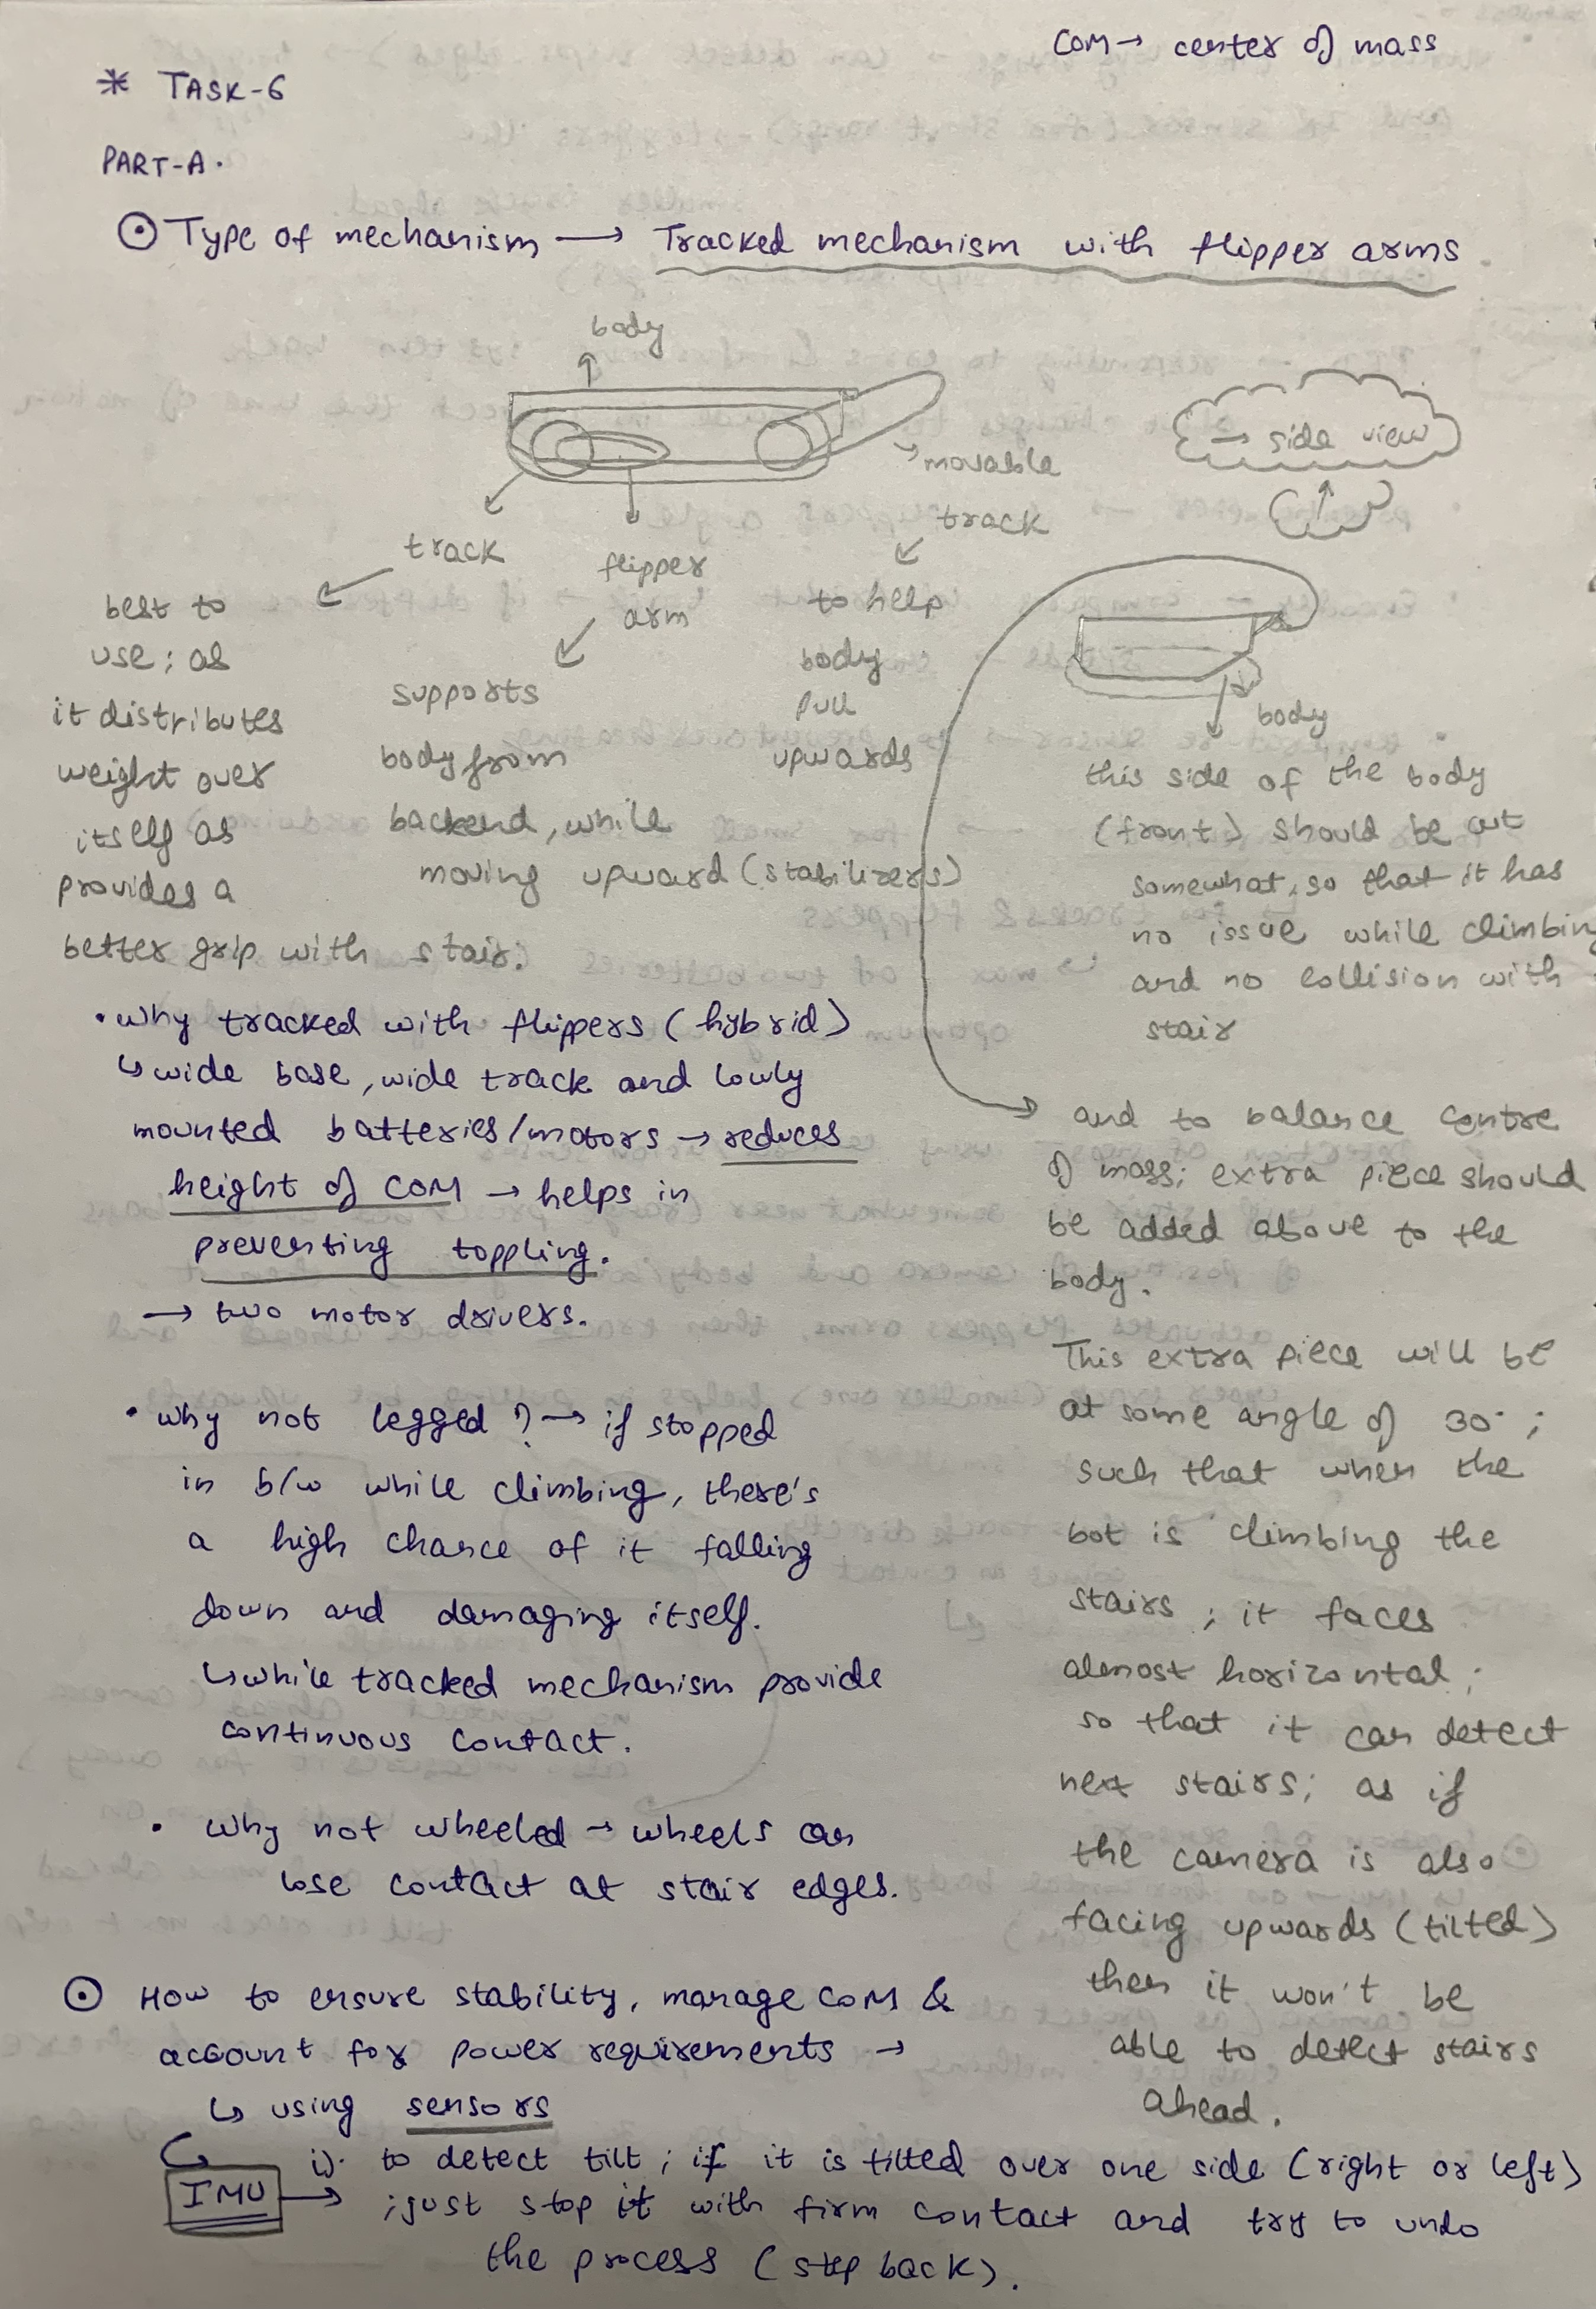 COM → center of mass
* TASK-6
PART-A.
⊙ Type of mechanism → Tracked mechanism with flipper arms
body
→ side view
movable
track
track
flipper
arm
best to
use; as
it distributes
weight over
itself as
provides a
better grip with stair.
supports
body from
backend, while
moving upward (stabilizers)
to help
body
pull
upwards
body
this side of the body
(front) should be cut
somewhat, so that it has
no issue while climbing
and no collision with
stair
and to balance centre
of mass; extra piece should
be added above to the
body.
This extra piece will be
at some angle of 30°;
such that when the
bot is climbing the
stairs; it faces
almost horizontal;
so that it can detect
next stairs; as if
the camera is also
facing upwards (tilted)
then it won't be
able to detect stairs
ahead.
• why tracked with flippers (hybrid)
↳ wide base, wide track and lowly
mounted batteries/motors → reduces
height of COM → helps in
preventing toppling.
→ two motor drivers.
• why not legged? → if stopped
in b/w while climbing, there's
a high chance of it falling
down and damaging itself.
↳ while tracked mechanism provide
continuous contact.
• why not wheeled → wheels can
lose contact at stair edges.
⊙ How to ensure stability, manage COM &
account for power requirements →
↳ using sensors
IMU → i). to detect tilt; if it is tilted over one side (right or left)
; just stop it with firm contact and try to undo
the process (step back).